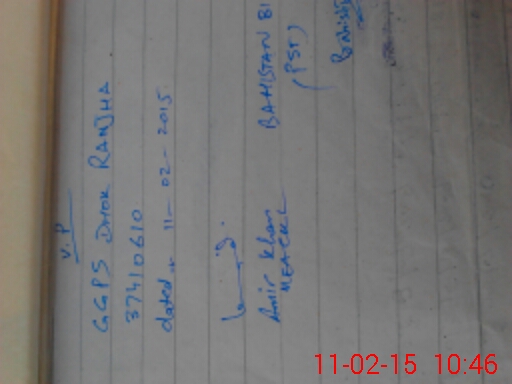 V.P
GGPS DHOK RANJHA
37410610
dated 11-02-2015
Amir Khan
MEACKL
BAHISTAN BI
(PST)
11-02-15 10:46